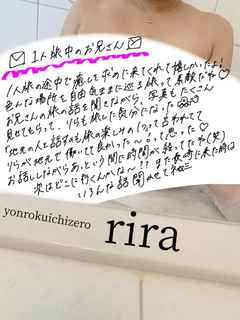 ✉ 1人旅中のお兄さん ✉
1人旅の途中で癒しを求めに来てくれて嬉しかったよ♡
色んな場所を自由気ままに巡る旅って素敵だね♡
お兄さんの旅の話を聞きながら、写真もたくさん
見せてもらって、りらも旅した気分になった
「地元の人と話すのも旅の楽しみの1つ」って言われて
りらが地元で働いてて良かった〜って思った♡
お話ししながらあっという間に時間が経ってたね(笑)
次はどこに行くんかな〜?? また長崎に来た時は
いろんな話聞かせてね
yonrokuichizero
rira